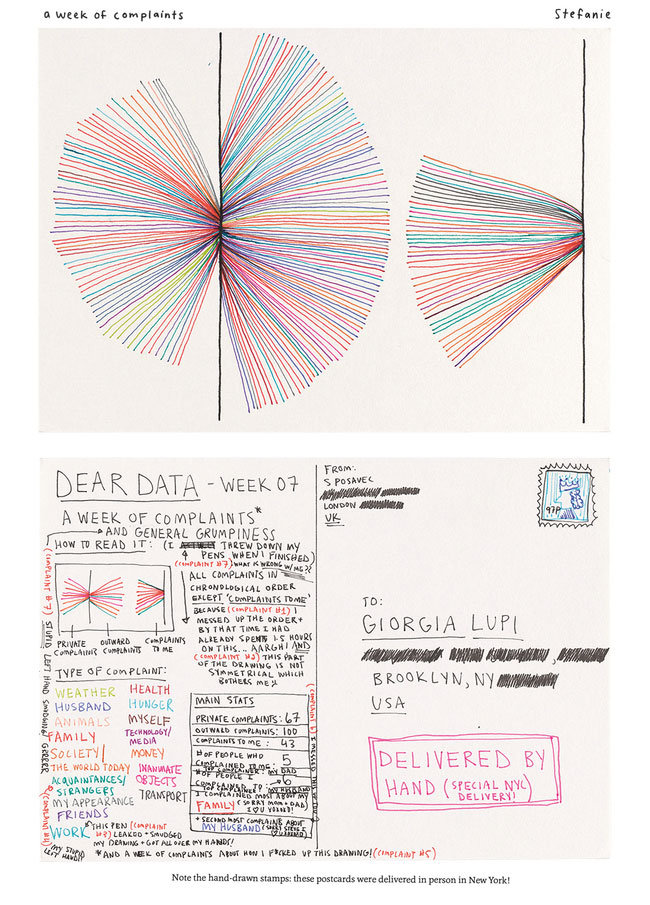 a week of complaints
Stefanie
DEAR DATA - WEEK 07
A WEEK OF COMPLAINTS*
AND GENERAL GRUMPINESS
HOW TO READ IT: (I THREW DOWN MY
PENS WHEN I FINISHED)
(COMPLAINT #7) WHAT IS WRONG W/ME??
ALL COMPLAINTS IN
CHRONOLOGICAL ORDER
EXCEPT 'COMPLAINTS TO ME'
BECAUSE (COMPLAINT #1) I
MESSED UP THE ORDER +
BY THAT TIME I HAD
ALREADY SPENT 1.5 HOURS
ON THIS... AARGH! AND
(COMPLAINT #2) THIS PART
OF THE DRAWING IS NOT
SYMMETRICAL WHICH
BOTHERS ME
PRIVATE COMPLAINTS
OUTWARD COMPLAINTS
COMPLAINTS TO ME
TYPE OF COMPLAINT:
WEATHER
HUSBAND
ANIMALS
FAMILY
SOCIETY/
THE WORLD TODAY
ACQUAINTANCES/
STRANGERS
MY APPEARANCE
FRIENDS
WORK
HEALTH
HUNGER
MYSELF
TECHNOLOGY/
MEDIA
MONEY
INANIMATE
OBJECTS
TRANSPORT
MAIN STATS
PRIVATE COMPLAINTS: 67
OUTWARD COMPLAINTS: 100
COMPLAINTS TO ME: 43
# OF PEOPLE WHO
COMPLAINED TO ME: 5
TOP COMPLAINER: MY DAD
# OF PEOPLE I
COMPLAINED TO: 6
TOP COMPLAINER TO: MY HUSBAND
I COMPLAINED MOST ABOUT MY
FAMILY (SORRY MOM + DAD)
I ♡ U
+ SECOND MOST COMPLAINTS ABOUT
MY HUSBAND (SORRY STEVE I
*THIS PEN (COMPLAINT
#3) LEAKED + SMUDGED
MY DRAWING + GOT ALL OVER MY HANDS!
*AND A WEEK OF COMPLAINTS ABOUT HOW I F*CKED UP THIS DRAWING! (COMPLAINT #5)
(COMPLAINT #7) STUPID LEFT HAND SMUDGING!
(COMPLAINT #4)
MY STUPID
LEFT HAND!!
FROM:
S POSAVEC
LONDON
UK
97P
TO:
GIORGIA LUPI
BROOKLYN, NY
USA
DELIVERED BY
HAND (SPECIAL NYC
DELIVERY!)
Note the hand-drawn stamps: these postcards were delivered in person in New York!